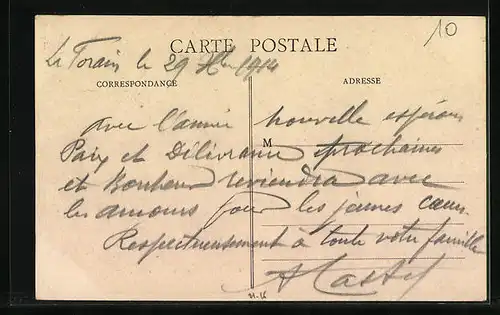 10
CARTE POSTALE
Le Torain le 29 Xbre 1914
CORRESPONDANCE
ADRESSE
avec l'année nouvelle espérons
M
Paix et Délivrance prochaines
et Bonheur reviendra avec
les amours pour les jeunes cœurs
Respectueusement à toute votre famille